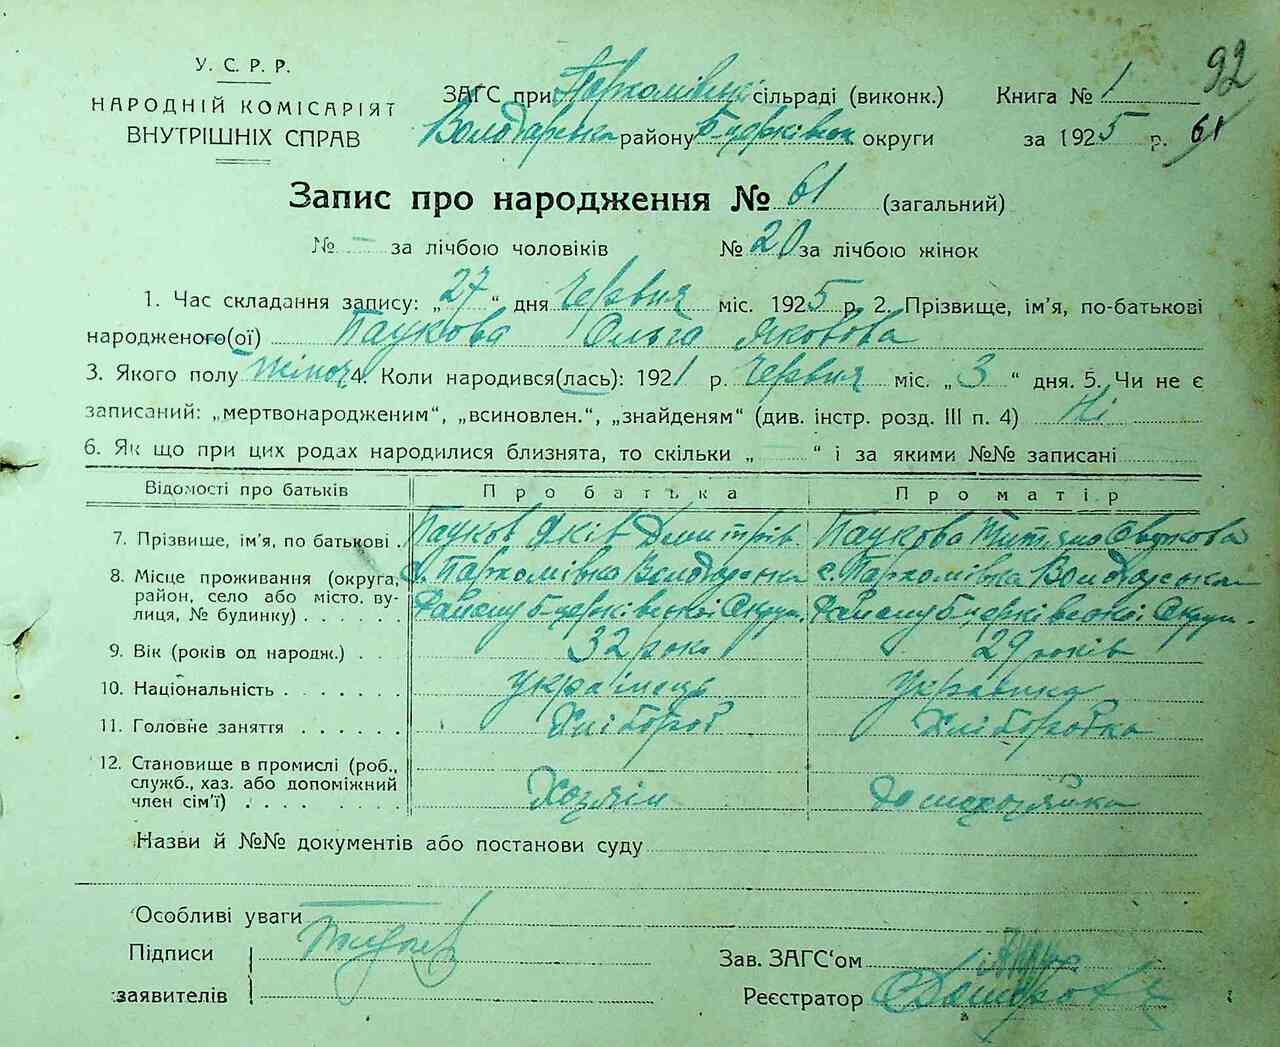 92
У. С. Р. Р.
НАРОДНІЙ КОМІСАРІЯТ
ВНУТРІШНІХ СПРАВ
ЗАГС при Пархомівце сільраді (виконк.) Книга № 1
Володарська району Б-церківськ округи за 1925 р. 61
Запис про народження № 61 (загальний)
№ – за лічбою чоловіків № 20 за лічбою жінок
1. Час складання запису: „27“ дня Червня міс. 1925 р. 2. Прізвище, ім’я, по-батькові
народженого(ої) Паукова Ольга Яковова
3. Якого полу жіноч 4. Коли народився(лась): 1921 р. Червня міс. „3“ дня. 5. Чи не є
записаний: „мертвонародженим“, „всиновлен.“, „знайденям“ (див. інстр. розд. III п. 4) Ні
6. Як що при цих родах народилися близнята, то скільки „ “ і за якими №№ записані
Відомості про батьків Про батька Про матір
7. Прізвище, ім’я, по батькові Пауков Яків Дмитрів Паукова
8. Місце проживання (округа, район, село або місто, вулиця, № будинку) с. Пархомівка Володарська с. Пархомівка Володарська
Району Б-церківської Округ. Району Б-церківської Округ.
9. Вік (років од народж.) 32 роки 29 років
10. Національність українець українка
11. Головне заняття Хлібороб Хліборобка
12. Становище в промислі (роб., служб., хаз. або допоміжний член сім’ї) Хозяїн
Назви й №№ документів або постанови суду
Особливі уваги
Підписи
заявителів
Зав. ЗАГС‘ом
Реєстратор